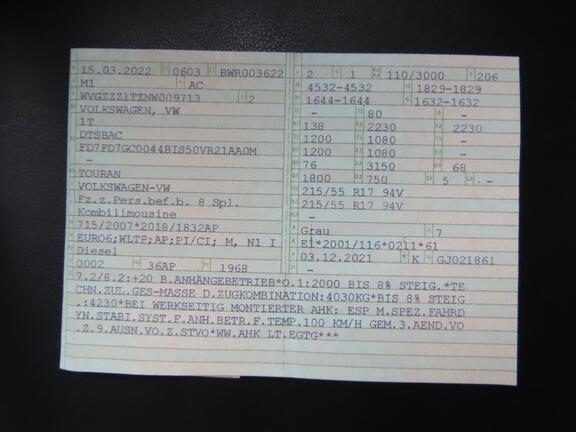 15.03.2022 0603 BWR003622
M1 AC
WVGZZZ1TZNW009713 2
VOLKSWAGEN, VW
1T
DTSBAC
FD7FD7GC0044BIS50VR21AA0M
-
TOURAN
VOLKSWAGEN-VW
Fz.z.Pers.bef.b. 8 Spl.
Kombilimousine
715/2007*2018/1832AP
EURO6;WLTP;AP;PI/CI; M, N1 I
Diesel
0002 36AP 1968
2 1 110/3000 206
4532-4532 1829-1829
1644-1644 1632-1632
- 80 -
138 2230 2230
1200 1080 -
1200 1080 -
76 3150 68
1800 750 5 -
215/55 R17 94V
215/55 R17 94V
-
Grau 7
E1*2001/116*0211*61
03.12.2021 K GJ021861
-
7.2/8.2:+20 B.ANHÄNGEBETRIEB*O.1:2000 BIS 8% STEIG.*TE
CHN.ZUL.GES-MASSE D.ZUGKOMBINATION:4030KG*BIS 8% STEIG
.:4230*BEI WERKSEITIG MONTIERTER AHK: ESP M.SPEZ.FAHRD
YN.STABI.SYST.F.ANH.BETR.F.TEMP.100 KM/H GEM.3.AEND.VO
.Z.9.AUSN.VO.Z.STVO*WW.AHK LT.EGTG***